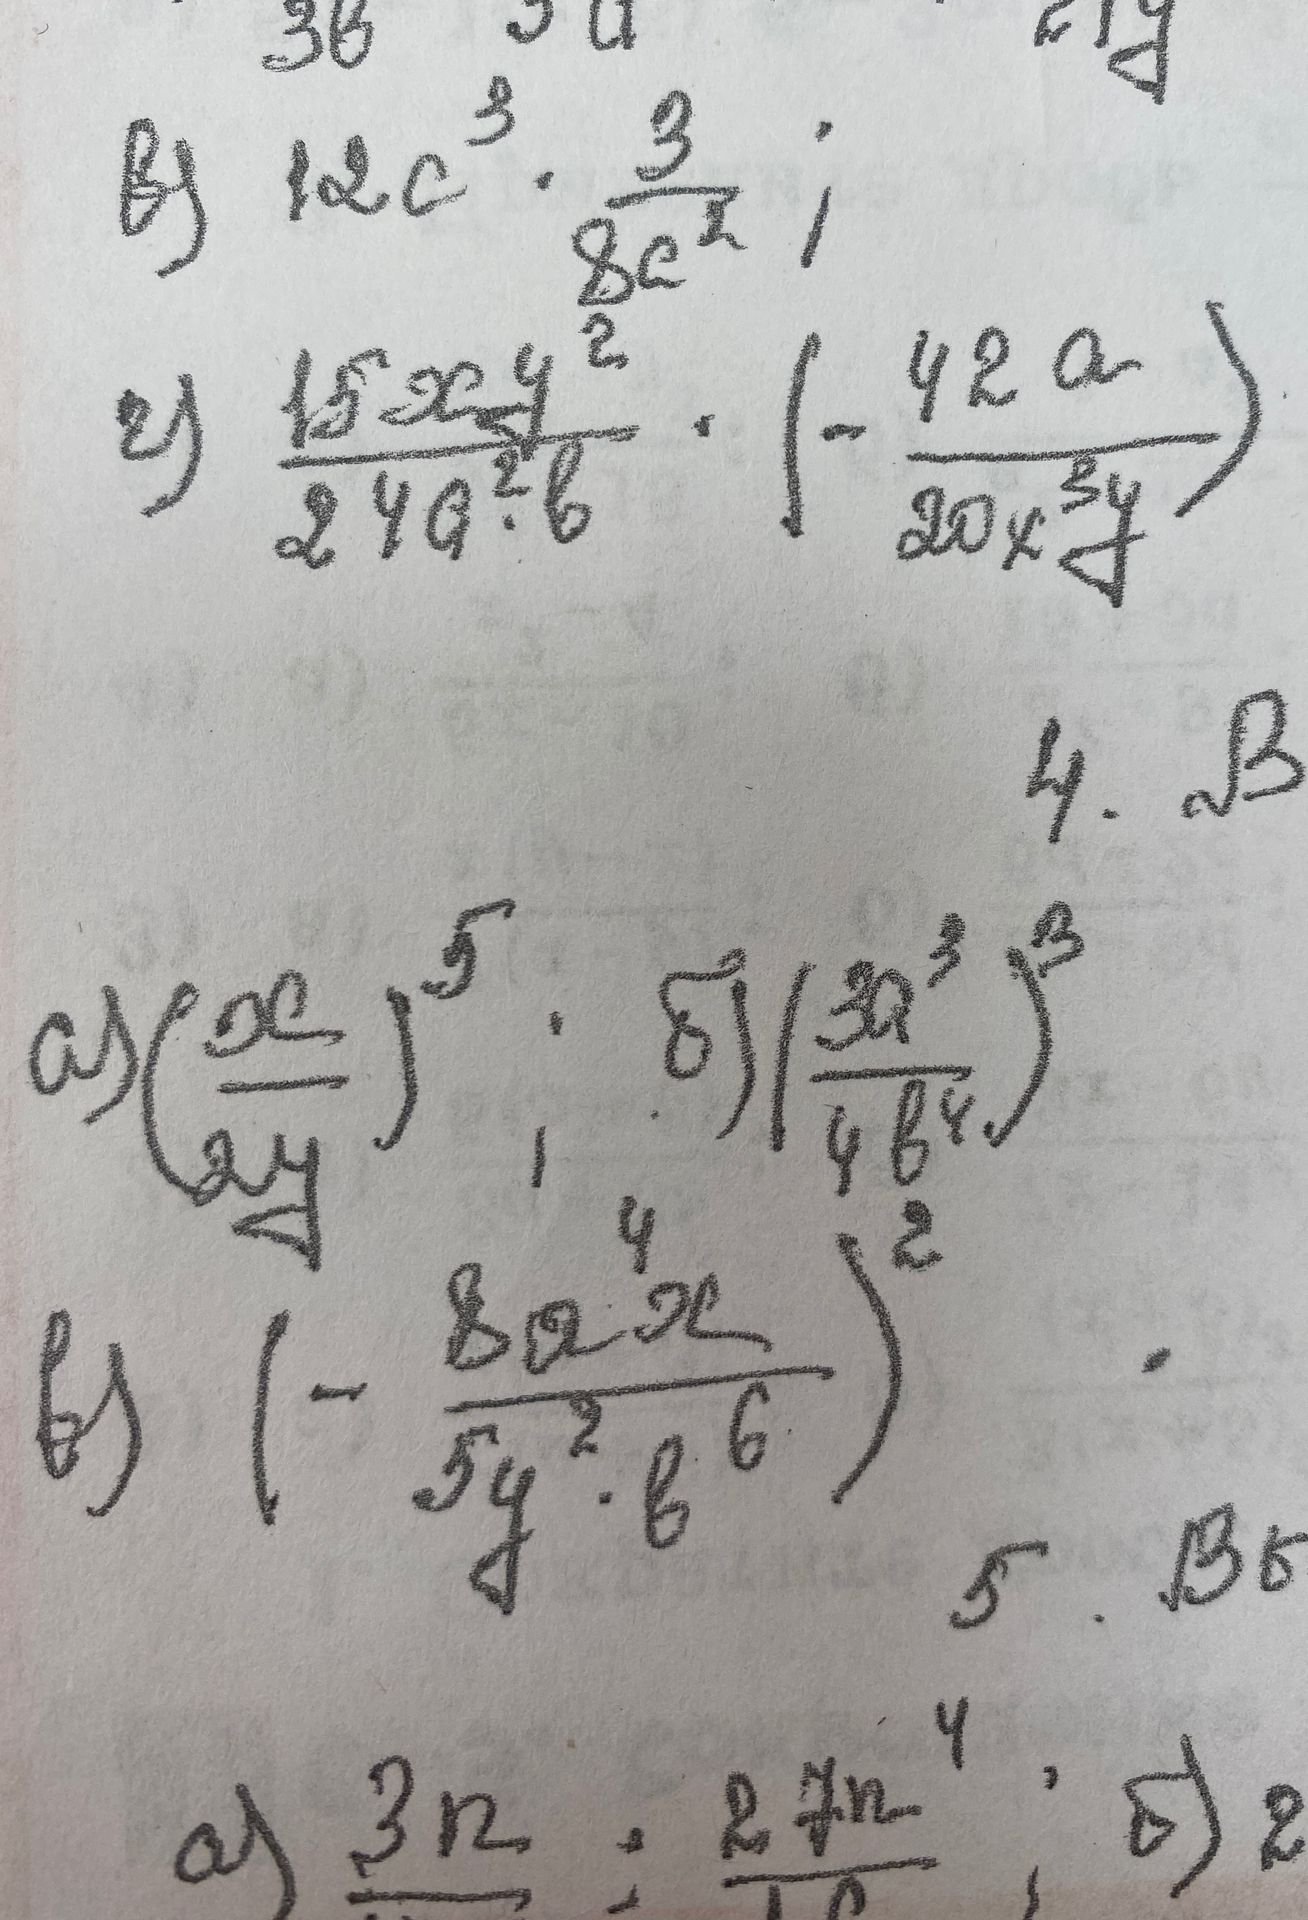 3б 5a 21y
в) 12c³ · 3/8c² ;
г) 15xy²/24a²·b · (- 42a/20x³y)
4. В
а) (x/2y)⁵ ; б) (3a³/4b⁴)³
в) (- 8a⁴x/5y²·b⁶)²
5. Вы
а) 3n : 27n⁴ ; б) 2